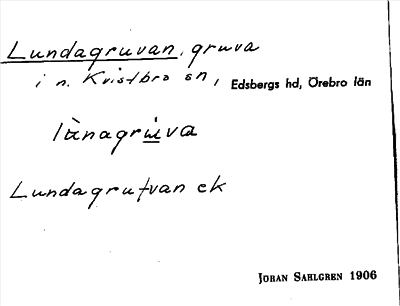 Lundagruvan, gruva
i n. Kvistbro sn, Edsbergs hd, Örebro län
lànagru̲va
Lundagrufvan ek
JÖRAN SAHLGREN 1906